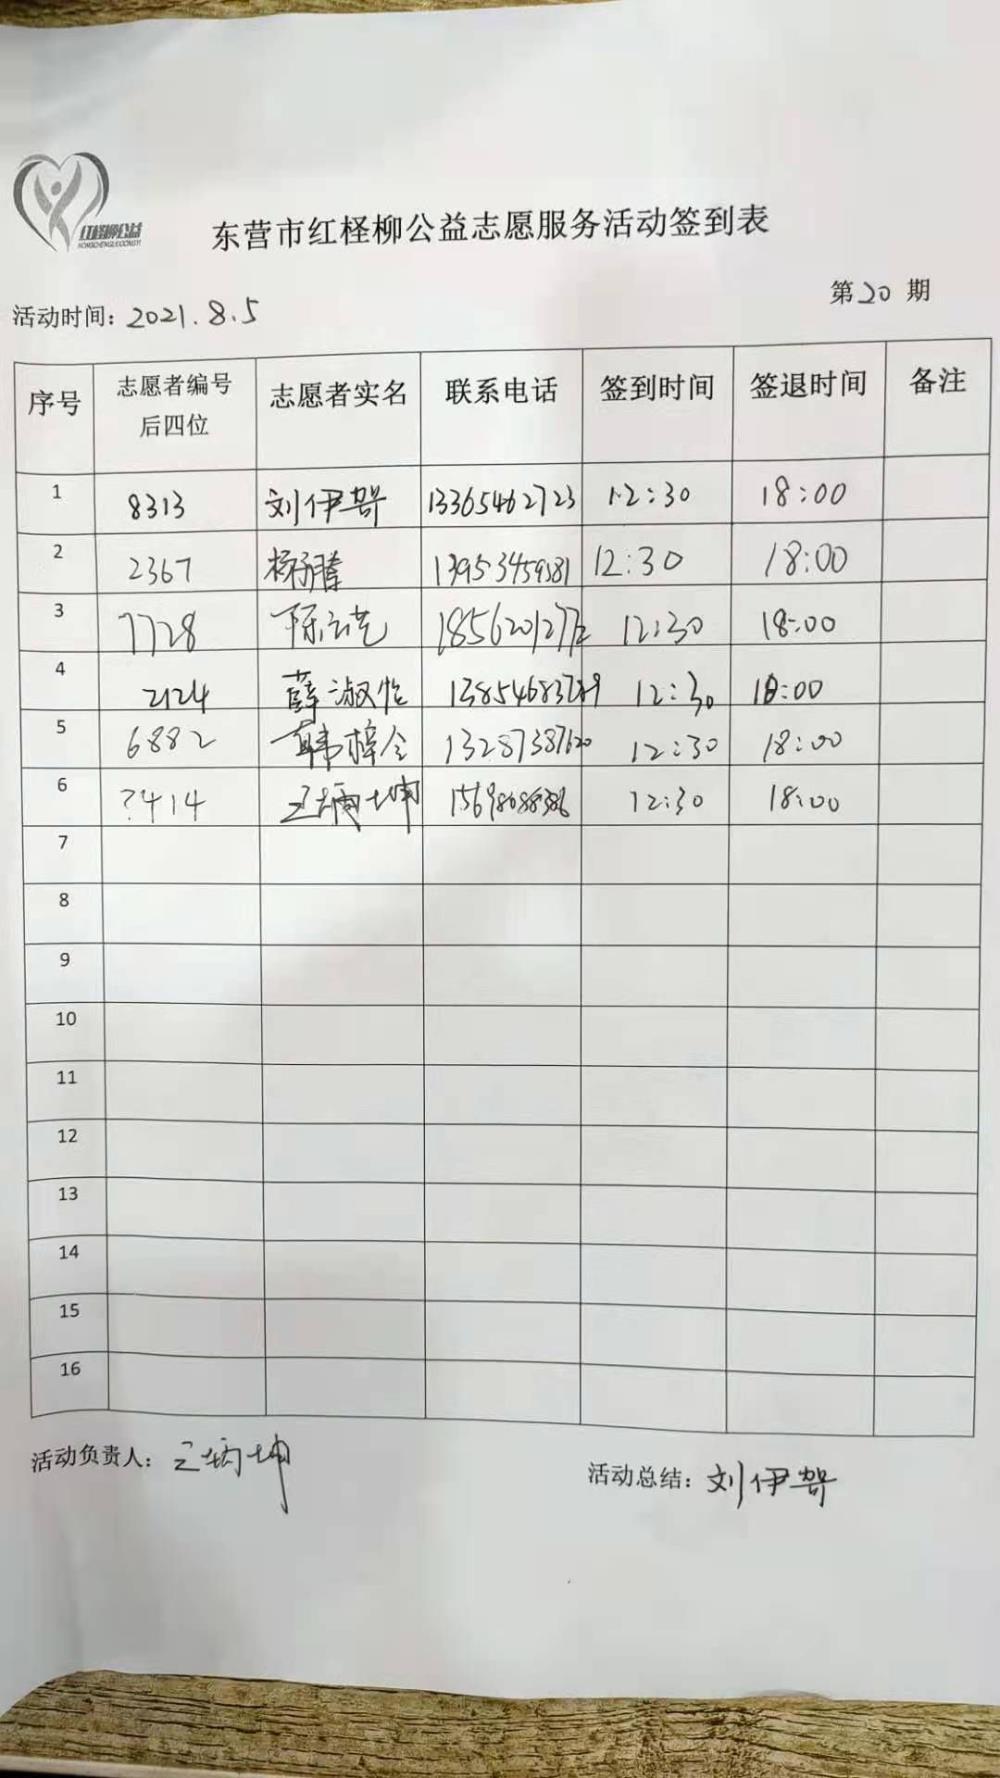 红柽柳公益
HONGCHENGLIUGONGYI
东营市红柽柳公益志愿服务活动签到表
活动时间: 2021.8.5
第20期
序号 志愿者编号后四位 志愿者实名 联系电话 签到时间 签退时间 备注
1 8313 刘伊 13365462723 12:30 18:00
2 2367 12:30 18:00
3 7728 陈 12:30 18:00
4 2124 薛淑怡 12:30 18:00
5 6882 韩梓 12:30 18:00
6 ?414 王炳坤 12:30 18:00
7
8
9
10
11
12
13
14
15
16
活动负责人: 王炳坤
活动总结: 刘伊